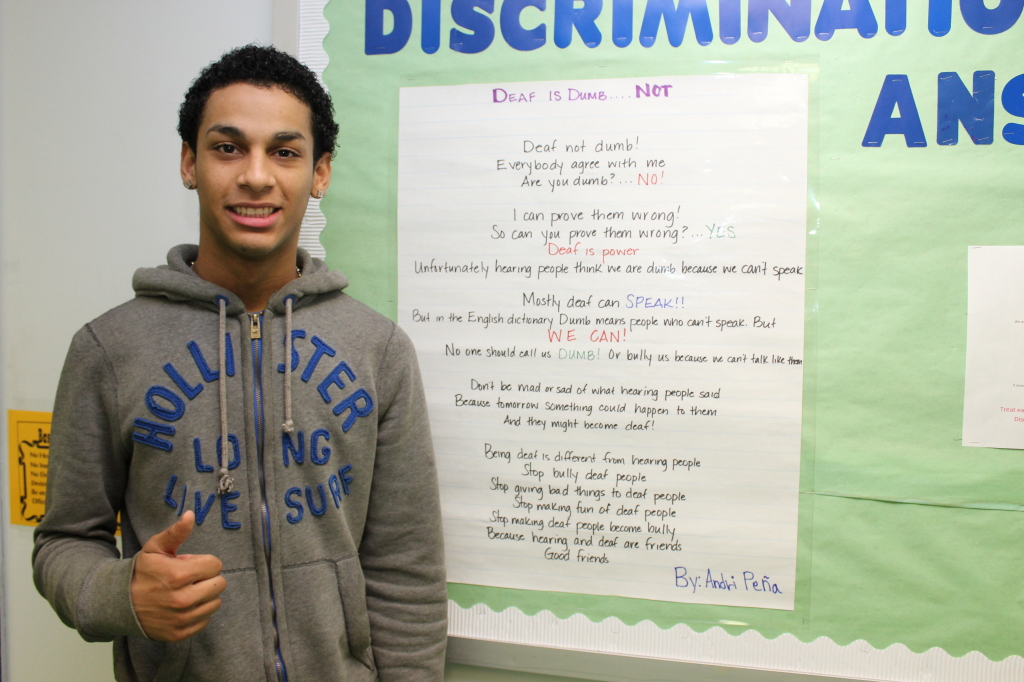 DISCRIMINATIO
ANS
DEAF IS DUMB.... NOT
Deaf not dumb!
Everybody agree with me
Are you dumb?... NO!
I can prove them wrong!
So can you prove them wrong?... YES
Deaf is power
Unfortunately hearing people think we are dumb because we can't speak
Mostly deaf can SPEAK!!
But in the English dictionary Dumb means people who can't speak. But
WE CAN!
No one should call us DUMB! Or bully us because we can't talk like them
Don't be mad or sad of what hearing people said
Because tomorrow something could happen to them
And they might become deaf!
Being deaf is different from hearing people
Stop bully deaf people
Stop giving bad things to deaf people
Stop making fun of deaf people
Stop making deaf people become bully
Because hearing and deaf are friends
Good friends
By: Andri Peña
HOLLISTER
LONG
LIVE SURF
Treat